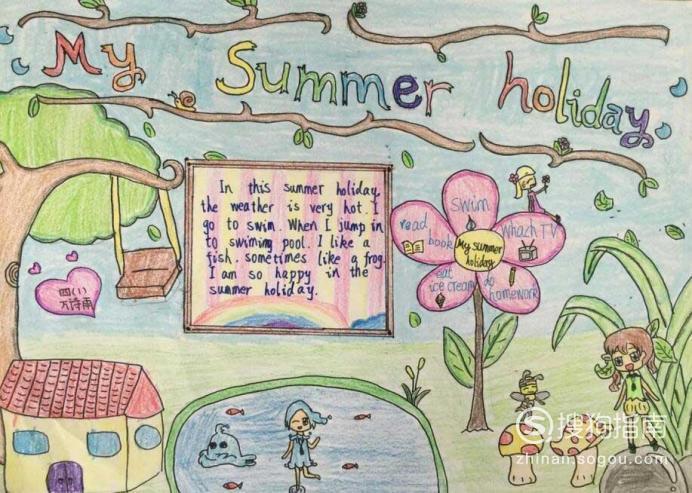 My Summer holiday
In this summer holiday,
the weather is very hot. I
go to swim. When I jump in
to swiming pool. I like a
fish. sometimes like a frog.
I am so happy in the
summer holiday.
swim
read
book
whach TV
My summer
holiday
eat
ice cream
do
homework
四(1)
搜狗指南
zhinan.sogou.com